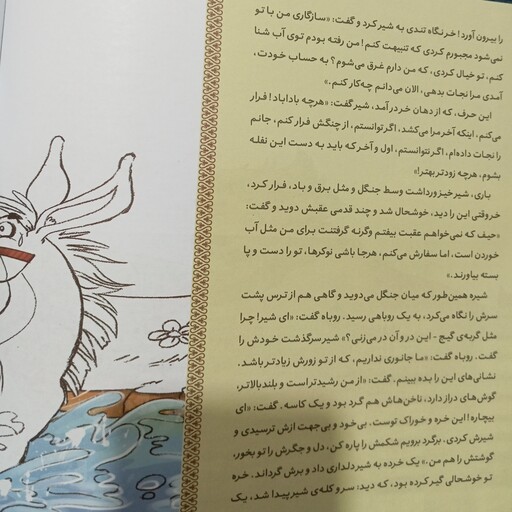 را بیرون آورد! خر نگاه تندی به شیر کرد و گفت: «سازگاری من با تو
نمی‌شود مجبورم کردی که تنبیهت کنم! من رفته بودم توی آب شنا
کنم، تو خیال کردی، که من دارم غرق می‌شوم؟ به حساب خودت،
آمدی مرا نجات بدهی، الان می‌دانم چه‌کار کنم.»
این حرف، که از دهان خر در آمد، شیر گفت: «هرچه باداباد! فرار
می‌کنم. اینکه آخر مرا می‌کشد، اگر توانستم، از چنگش فرار کنم، جانم
را نجات داده‌ام، اگر نتوانستم، اول و آخر که باید به دست این نفله
بشوم، هرچه زودتر بهتر!»
باری، شیر خیز ورداشت وسط جنگل و مثل برق و باد، فرار کرد،
خر وقتی این را دید، خوشحال شد و چند قدمی عقبش دوید و گفت:
«حیف که نمی‌خواهم عقبت بیفتم وگرنه گرفتنت برای من مثل آب
خوردن است. اما سفارش می‌کنم، هرجا باشی نوکرها، تو را دست و پا
بسته بیاورند.»
شیره همین‌طور که میان جنگل می‌دوید و گاهی هم از ترس پشت
سرش را نگاه می‌کرد، به یک روباهی رسید. روباه گفت: «ای شیر! چرا
مثل گربه‌ی گیج - این در و آن در می‌زنی؟» شیر سرگذشت خودش را
گفت. روباه گفت: «ما جانوری نداریم، که از تو زورش زیادتر باشد.
نشانی‌های این را بده ببینم. گفت: «از من رشیدتر است و بلندبالاتر،
گوش‌های دراز دارد، ناخن‌هاش هم گرد بود و یک کاسه. گفت: «ای
بیچاره! این خره و خوراک توست. بی‌خود و بی‌جهت ازش ترسیدی و
شیرش کردی. برگرد برویم شکمش را پاره کن، دل و جگرش را تو بخور،
گوشتش را هم من.» یک خرده به شیر دلداری داد و برش گرداند. خره
تو خوشحالی گیر کرده بود، که دید: سر و کله‌ی شیر پیدا شد، یک